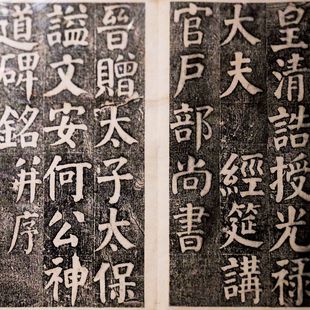 皇清誥授光祿
大夫 經筵講
官戶部尚書
晉贈太子太保
謚文安何公神
道碑銘并序